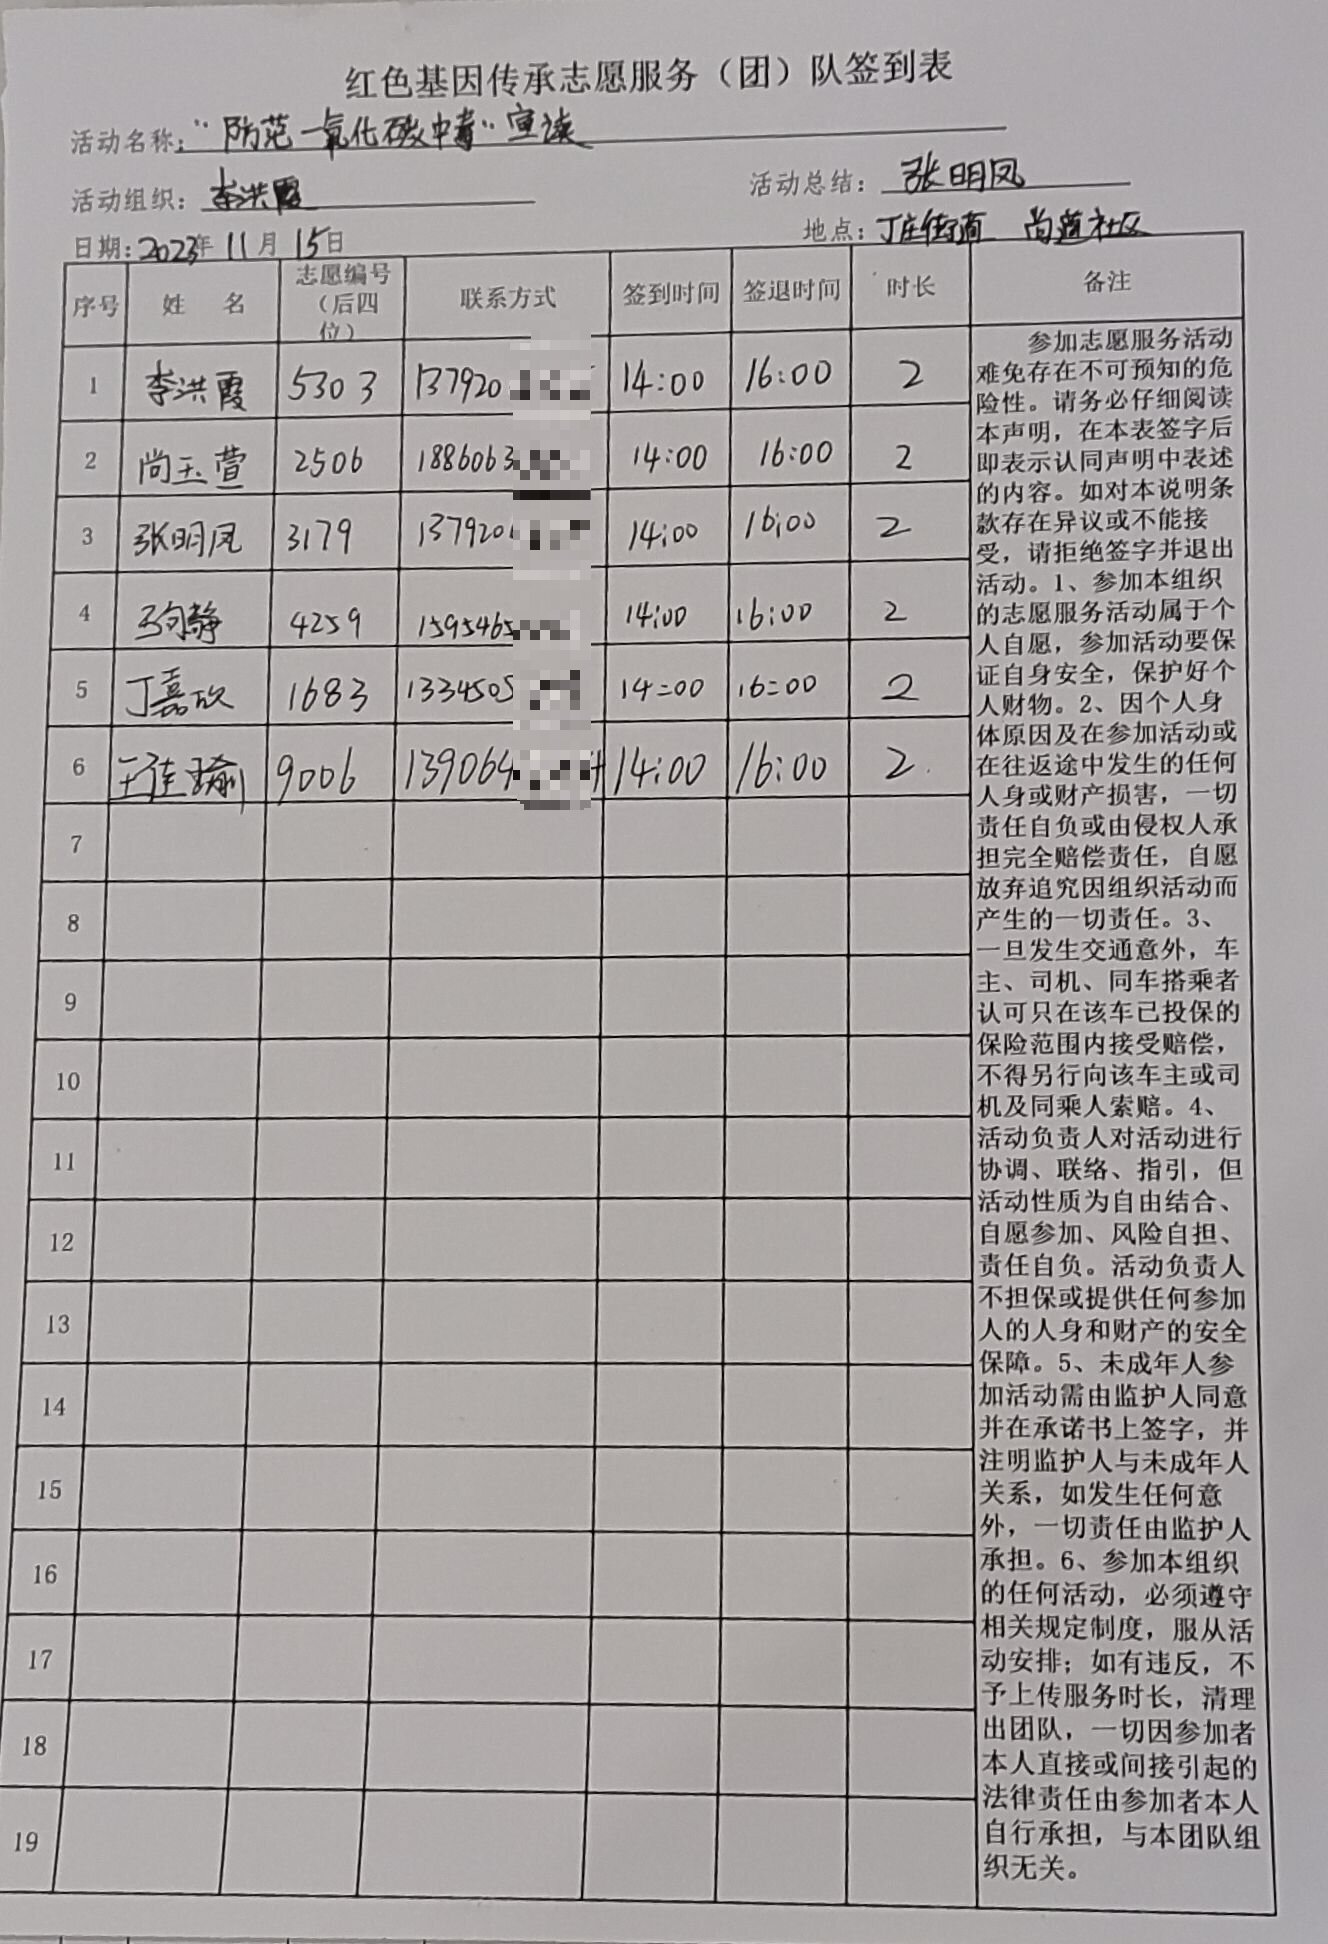 红色基因传承志愿服务（团）队签到表
活动名称：“防范一氧化碳中毒”宣读
活动组织：李洪霞 活动总结：张明凤
日期：2023年11月15日 地点：丁庄街道 尚道社区
序号 姓 名 志愿编号（后四位） 联系方式 签到时间 签退时间 时长 备注
1 李洪霞 5303 137920 14:00 16:00 2
2 尚玉萱 2506 1886063 14:00 16:00 2
3 张明凤 3179 137920 14:00 16:00 2
4 静 4259 1595465 14:00 16:00 2
5 丁嘉欣 1683 1334505 14:00 16:00 2
6 王佳瑜 9006 139064 14:00 16:00 2
7
8
9
10
11
12
13
14
15
16
17
18
19
参加志愿服务活动
难免存在不可预知的危
险性。请务必仔细阅读
本声明，在本表签字后
即表示认同声明中表述
的内容。如对本说明条
款存在异议或不能接
受，请拒绝签字并退出
活动。1、参加本组织
的志愿服务活动属于个
人自愿，参加活动要保
证自身安全，保护好个
人财物。2、因个人身
体原因及在参加活动或
在往返途中发生的任何
人身或财产损害，一切
责任自负或由侵权人承
担完全赔偿责任，自愿
放弃追究因组织活动而
产生的一切责任。3、
一旦发生交通意外，车
主、司机、同车搭乘者
认可只在该车已投保的
保险范围内接受赔偿，
不得另行向该车主或司
机及同乘人索赔。4、
活动负责人对活动进行
协调、联络、指引，但
活动性质为自由结合、
自愿参加、风险自担、
责任自负。活动负责人
不担保或提供任何参加
人的人身和财产的安全
保障。5、未成年人参
加活动需由监护人同意
并在承诺书上签字，并
注明监护人与未成年人
关系，如发生任何意
外，一切责任由监护人
承担。6、参加本组织
的任何活动，必须遵守
相关规定制度，服从活
动安排；如有违反，不
予上传服务时长，清理
出团队，一切因参加者
本人直接或间接引起的
法律责任由参加者本人
自行承担，与本团队组
织无关。